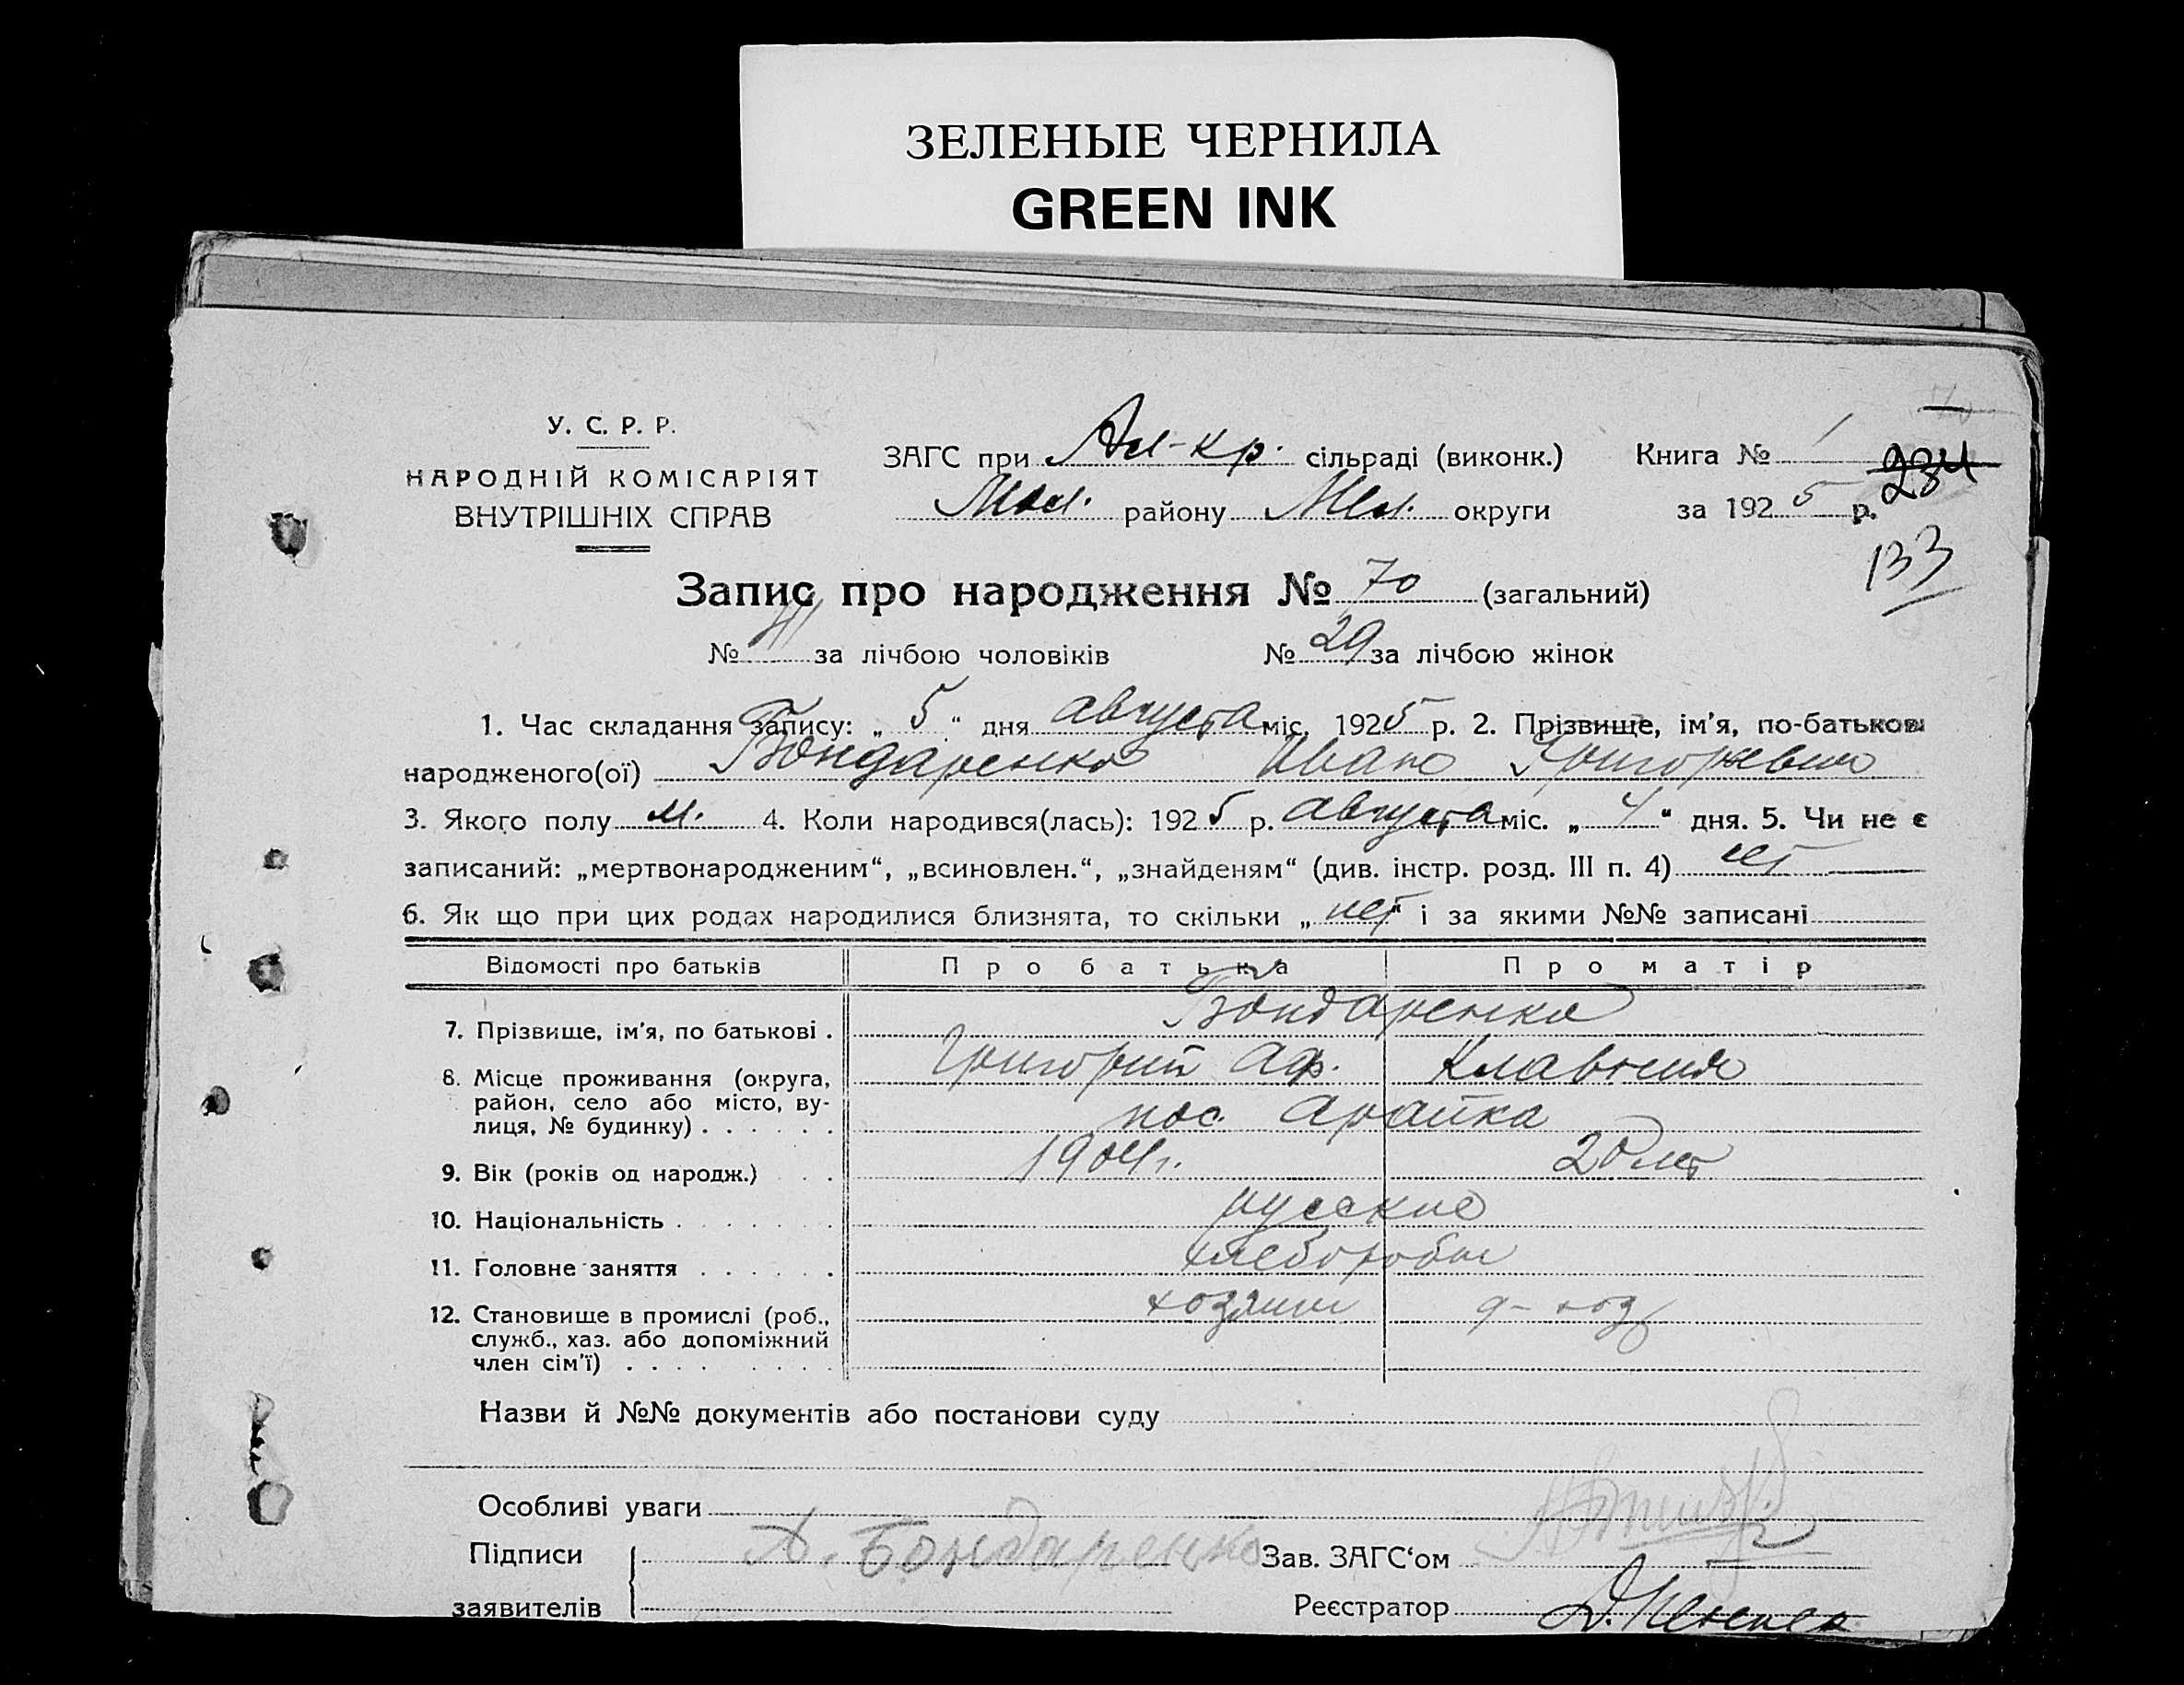 ЗЕЛЕНЫЕ ЧЕРНИЛА
GREEN INK
У. С. Р. Р.
НАРОДНІЙ КОМІСАРІЯТ
ВНУТРІШНІХ СПРАВ
ЗАГС при Ал-кр. сільраді (виконк.)
района Мел. округи
Книга № 1
234
за 1925 р.
133
Запис про народження № 70 (загальний)
№ 41 за лічбою чоловіків № 29 за лічбою жінок
1. Час складання запису: „ 5 “ дня августа міс. 1925 р. 2. Прізвище, ім'я, по-батькові
народженого(ої) Бондаренко Иван Григорьевич
3. Якого полу м. 4. Коли народився(лась): 1925 р. августа міс. „ 4 “ дня. 5. Чи не є
записаний: „мертвонародженим“, „всиновлен.“, „знайденям“ (див. інстр. розд. III п. 4) нет
6. Як що при цих родах народилися близнята, то скільки „ нет “ і за якими №№ записані
Відомості про батьків Про батька Про матір
Бондаренко
7. Прізвище, ім'я, по батькові .
Григорий Аф. Клавдия
8. Місце проживання (округа,
район, село або місто, ву-
лиця, № будинку) . . . . . .
пос. Арайка
9. Вік (років од народж.) . . . 1904г. 20 лет
10. Національність . . . . . . . русские
11. Головне заняття . . . . . . хлеборобы
12. Становище в промислі (роб.,
служб., хаз. або допоміжний
член сім'ї) . . . . . . . .
хозяин д-хоз
Назви й №№ документів або постанови суду
Особливі уваги
Підписи
Бондаренко
Зав. ЗАГС‘ом
заявителів
Реєстратор